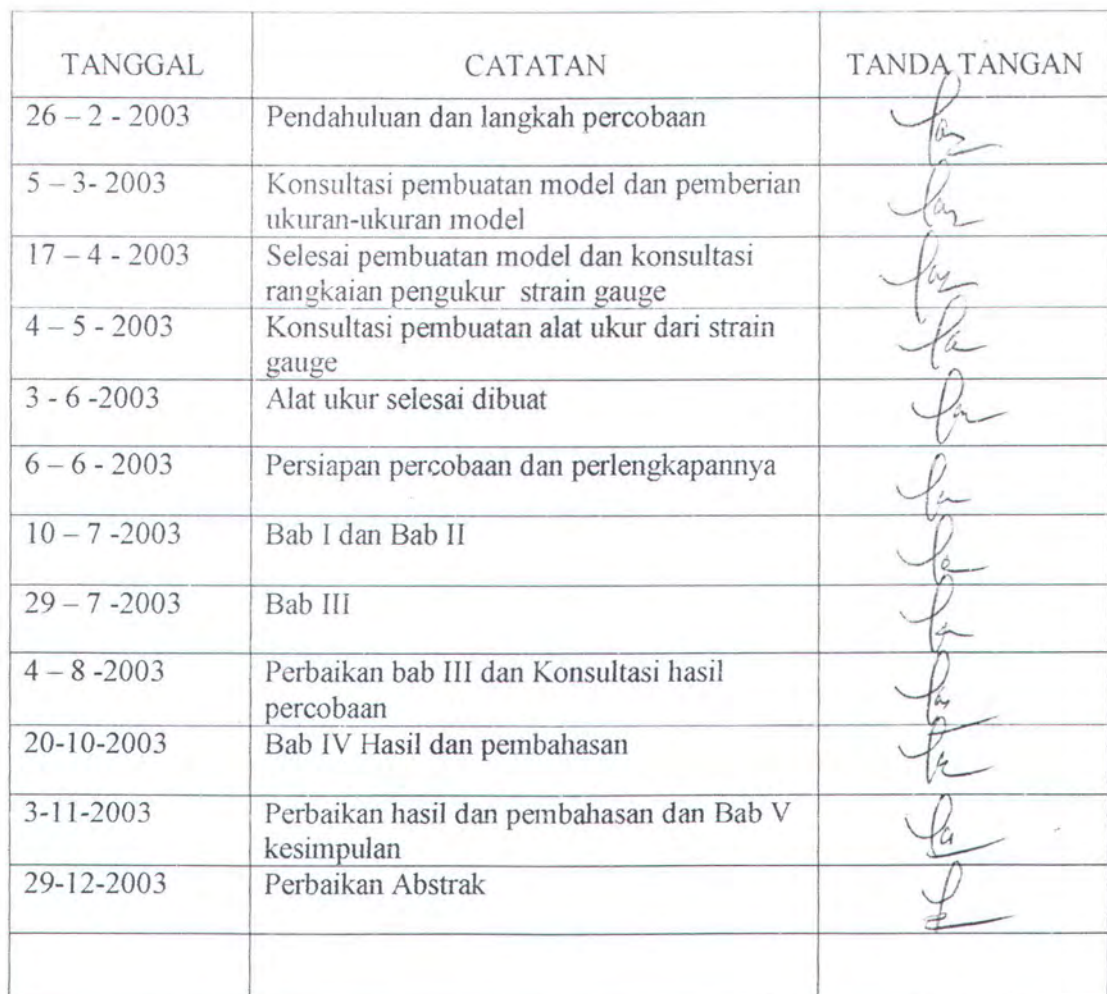 TANGGAL CATATAN TANDA TANGAN
26 – 2 - 2003 Pendahuluan dan langkah percobaan
5 – 3- 2003 Konsultasi pembuatan model dan pemberian
ukuran-ukuran model
17 – 4 - 2003 Selesai pembuatan model dan konsultasi
rangkaian pengukur strain gauge
4 – 5 - 2003 Konsultasi pembuatan alat ukur dari strain
gauge
3 - 6 -2003 Alat ukur selesai dibuat
6 – 6 - 2003 Persiapan percobaan dan perlengkapannya
10 – 7 -2003 Bab I dan Bab II
29 – 7 -2003 Bab III
4 – 8 -2003 Perbaikan bab III dan Konsultasi hasil
percobaan
20-10-2003 Bab IV Hasil dan pembahasan
3-11-2003 Perbaikan hasil dan pembahasan dan Bab V
kesimpulan
29-12-2003 Perbaikan Abstrak